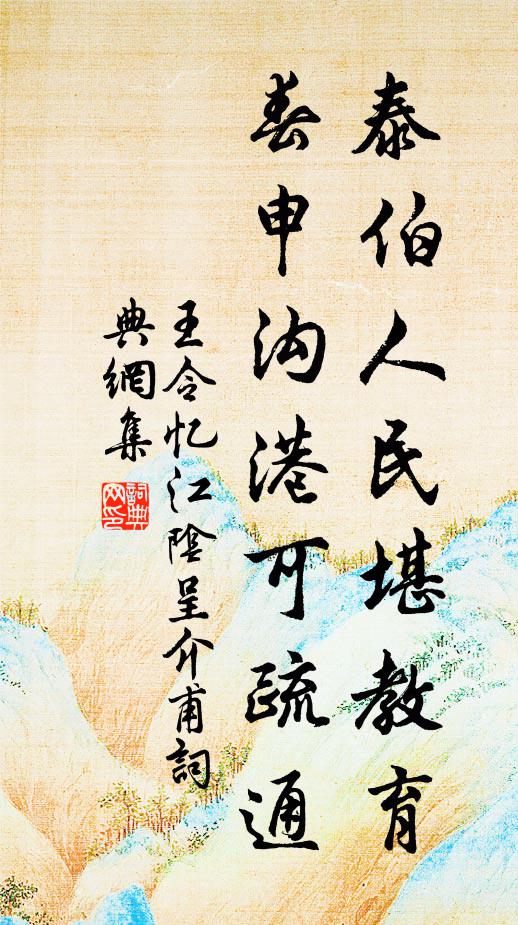 泰伯人民堪教育
春申沟港可疏通
王令忆江陰呈介甫詞
典網集
詞典网印